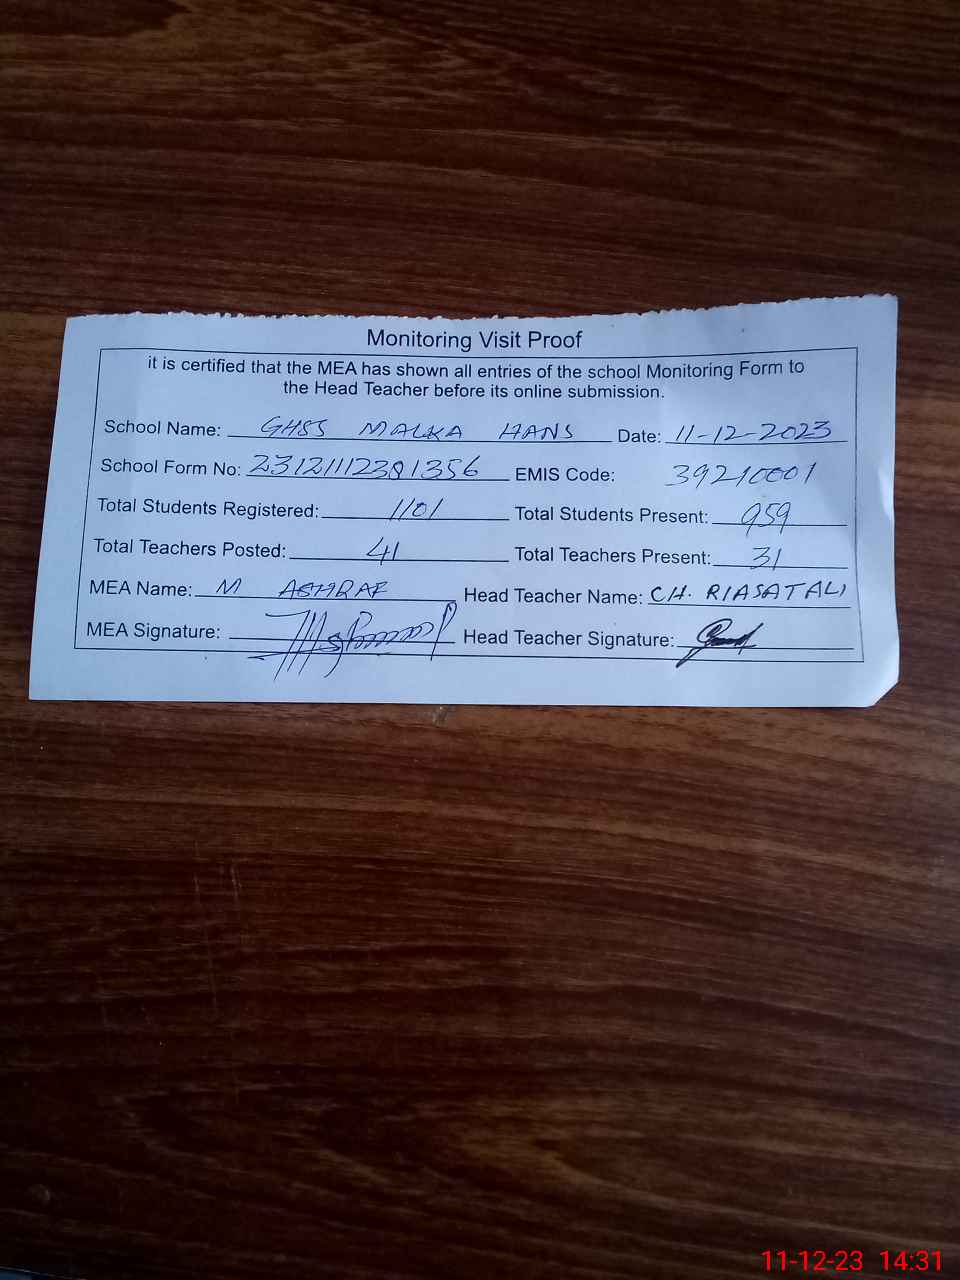 Monitoring Visit Proof
it is certified that the MEA has shown all entries of the school Monitoring Form to
the Head Teacher before its online submission.
School Name: GHSS MALKA HANS Date: 11-12-2023
School Form No: EMIS Code: 39210001
Total Students Registered: 1101 Total Students Present: 959
Total Teachers Posted: 41 Total Teachers Present: 31
MEA Name: M ASHRAF Head Teacher Name: CH. RIASAT ALI
MEA Signature: Head Teacher Signature:
11-12-23 14:31